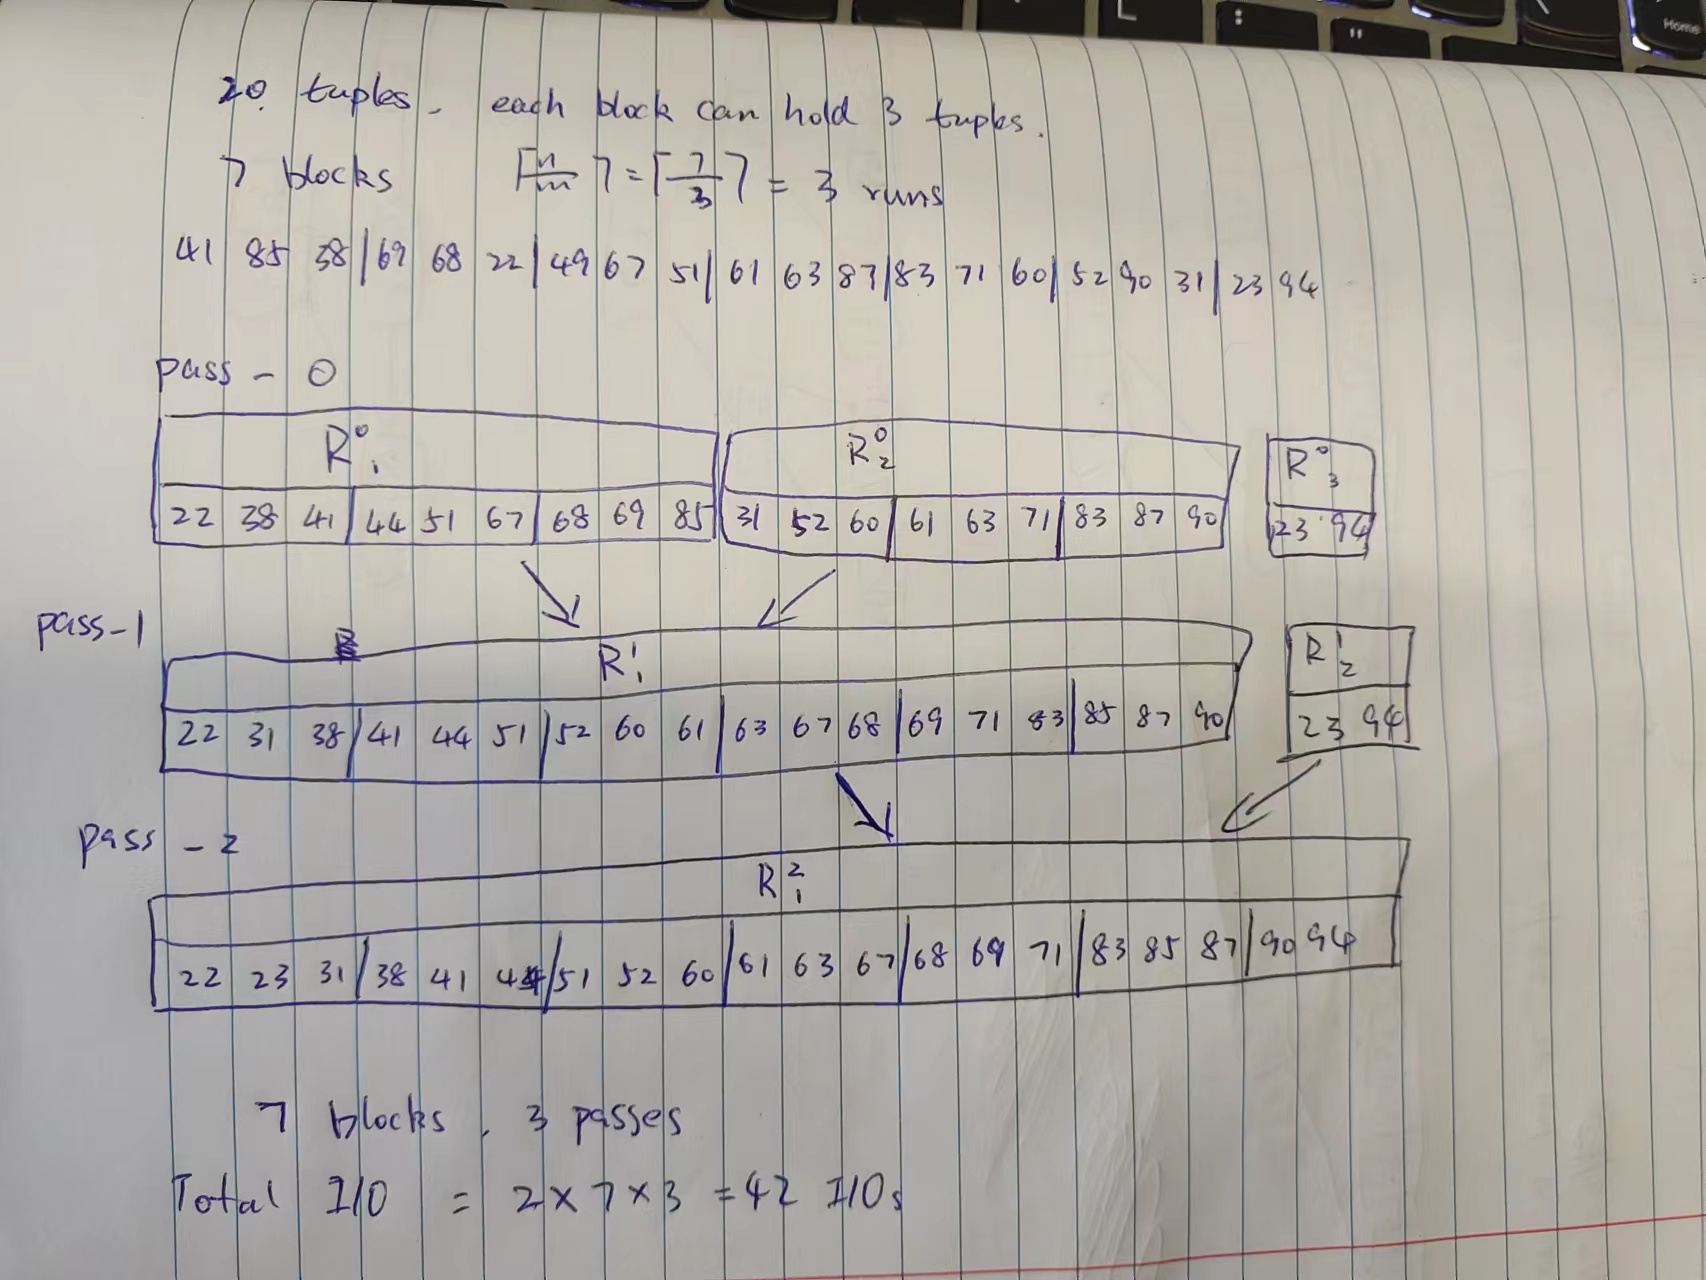 20 tuples. each block can hold 3 tuples.
7 blocks ⌈n/m⌉ = ⌈7/3⌉ = 3 runs
41 85 38 | 69 68 22 | 49 67 51 | 61 63 87 | 83 71 60 | 52 90 31 | 23 94
pass - 0
R⁰₁ R⁰₂ R⁰₃
22 38 41 | 44 51 67 | 68 69 85 31 52 60 | 61 63 71 | 83 87 90 23 94
pass-1
R¹₁ R¹₂
22 31 38 | 41 44 51 | 52 60 61 | 63 67 68 | 69 71 83 | 85 87 90 23 94
pass - 2
R²₁
22 23 31 | 38 41 44 | 51 52 60 | 61 63 67 | 68 69 71 | 83 85 87 | 90 94
7 blocks, 3 passes
Total I/O = 2 × 7 × 3 = 42 I/Os
L
: ;
"
Home